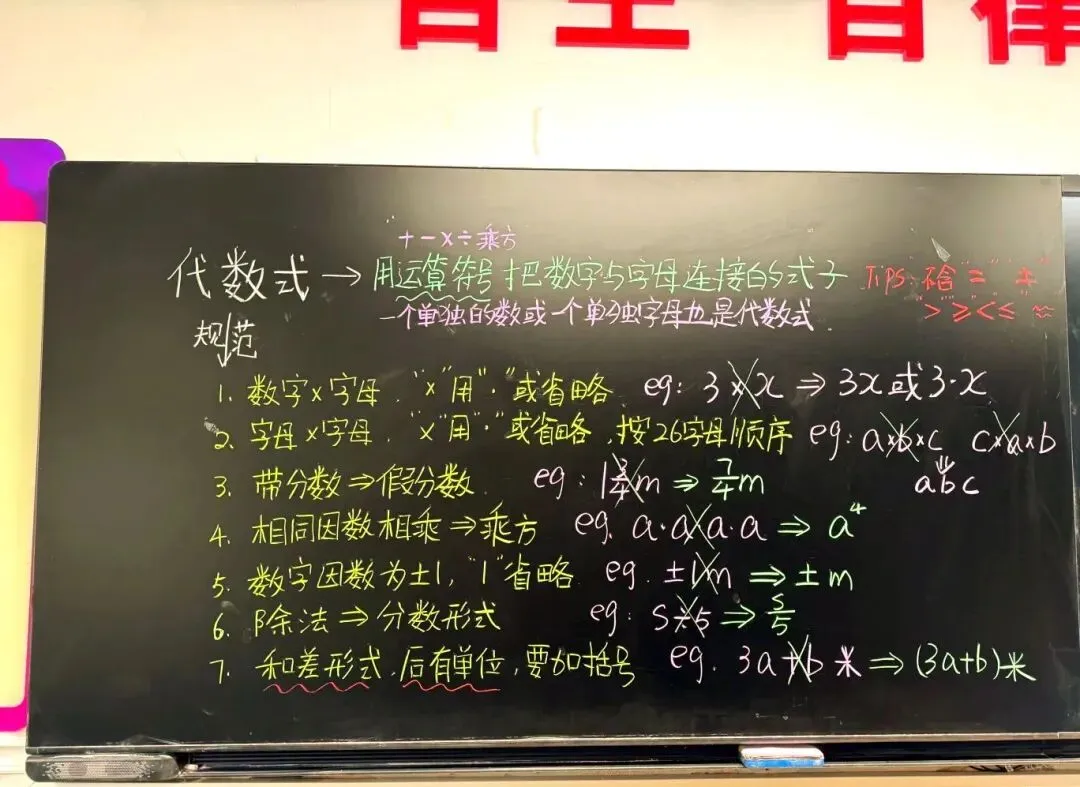 自主 自律
+ - × ÷ 乘方
代数式 → 用运算符号把数字与字母连接的式子 Tips: 不含 "=" "±"
一个单独的数或一个单独字母也是代数式. ">" "≥" "<" "≤" "≈"
规范
1. 数字×字母. "×"用"·"或省略 eg: 3×x ⇒ 3x或3·x
2. 字母×字母. "×"用"·"或省略, 按26字母顺序 eg: a×b×c c×a×b
3. 带分数⇒假分数. eg: 1 3/4 m ⇒ 7/4 m abc
4. 相同因数相乘⇒乘方 eg. a·a·a·a ⇒ a⁴
5. 数字因数为±1, "1"省略 eg. ±1m ⇒ ±m
6. 除法⇒分数形式 eg: S÷5 ⇒ S/5
7. 和差形式, 后有单位, 要加括号 eg. 3a+b 米 ⇒ (3a+b)米